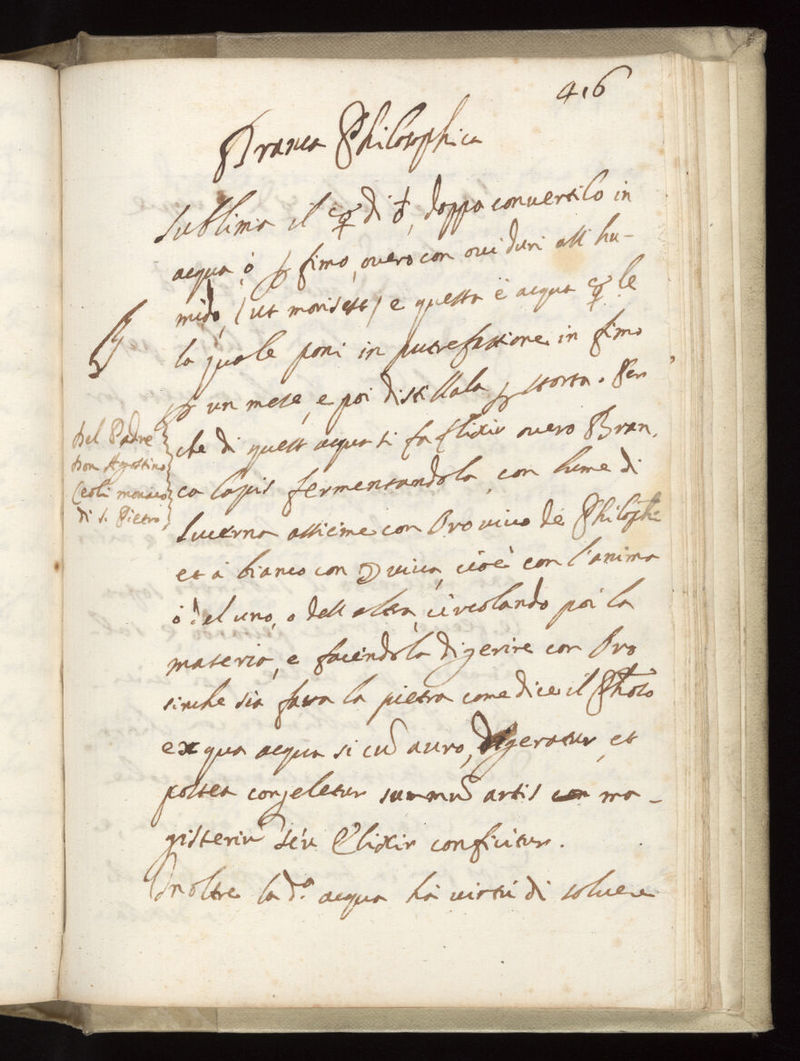 416
Branca Philosophica
Sublima il ☿ di ♁, doppo convertilo in
acqua, ò ꝑ fimo, overo con ovi duri all hu-
mido, (ut monsest) e questa è acqua ☿le
la quale poni in putrefattione in fimo
ꝑ un mese, e poi distillala ꝑ storta. Per
che di quest acqua si fa Elixir overo Bran,
ca lapis fermentandola, con lume di
Lucerna assieme con Oro vivo de Philosophi
et à bianco con ☽ viva, cioè con l'anima
ò del uno, o dell altra, circolando poi la
materia, e facendola digerire con Oro
sinche sia fatta la pietra come dice il Philo
ex qua acqua si cū auro, digeratur, et
postea congeletur summū artis ma-
gisteriū seu Elixir conficitur.
Inoltre la d.ª acqua hà virtù di solvere
Del Padre
Don Agostino
Ceoli monaco
di S. Pietro